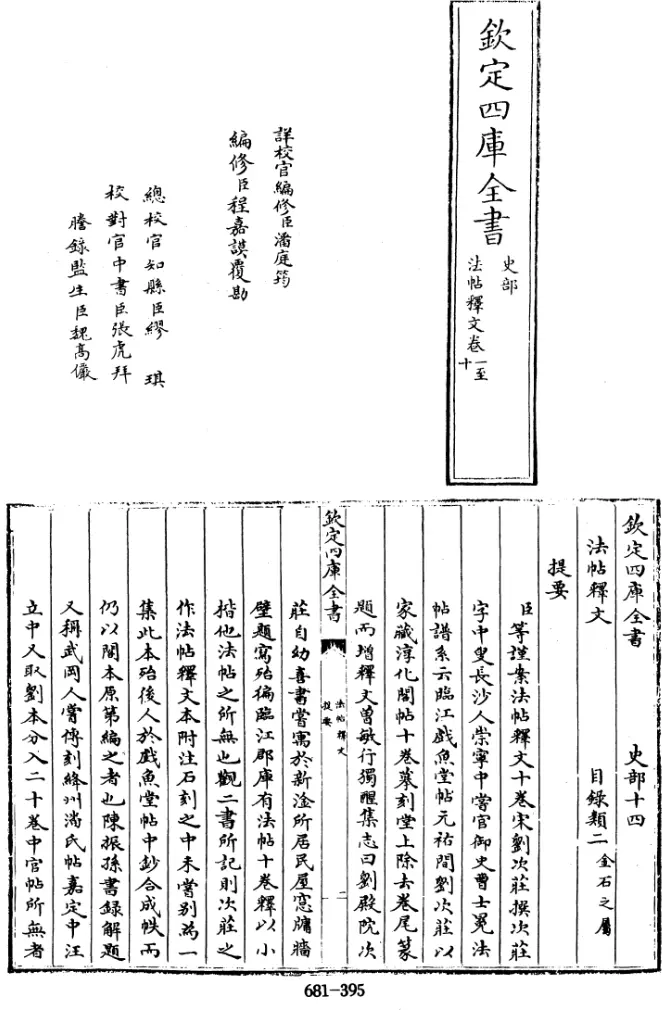 欽定四庫全書
史部
法帖釋文卷一至十
詳校官編修臣潘庭筠
編修臣程嘉謨覆勘
總校官知縣臣繆琪
校對官中書臣張虎拜
謄錄監生臣魏高儼
欽定四庫全書 史部十四
法帖釋文 目録類二金石之屬
提要
臣等謹案法帖釋文十卷宋劉次莊撰次莊
字中叟長沙人崇寧中嘗官御史曹士冕法
帖譜系云臨江戯魚堂帖元祐間劉次莊以
家藏淳化閣帖十卷摹刻堂上除去卷尾篆
題而增釋文曾敏行獨醒集志曰劉殿院次
欽定四庫全書
法帖釋文
提要
二
莊自幼喜書嘗寓於新淦所居民屋窓牖牆
壁題寫殆徧臨江郡庫有法帖十卷釋以小
楷他法帖之所無也觀二書所記則次莊之
作法帖釋文本附注石刻之中未嘗别為一
集此本殆後人於戯魚堂帖中鈔合成帙而
仍以閣本原第編之者也陳振孫書録解題
又稱武岡人嘗傳刻絳州潘氏帖嘉定中汪
立中又取劉本分入二十卷中官帖所無者
681-395